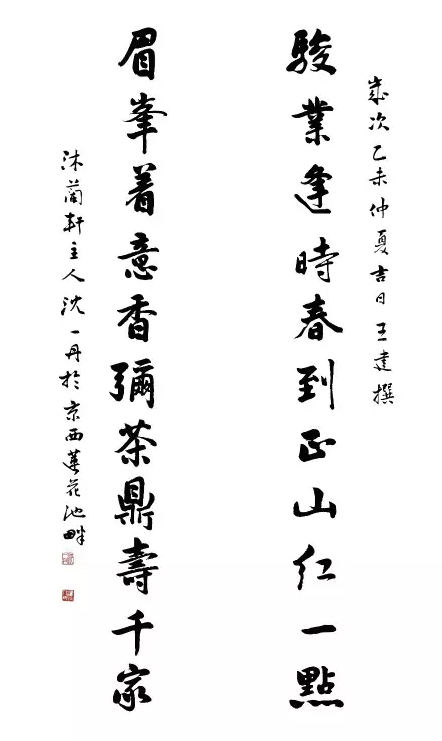 歲次乙未仲夏吉日王建撰
駿業逢時春到正山紅一點
眉峯着意香彌茶鼎壽千家
沐蘭軒主人沈一丹於京西蓮花池畔